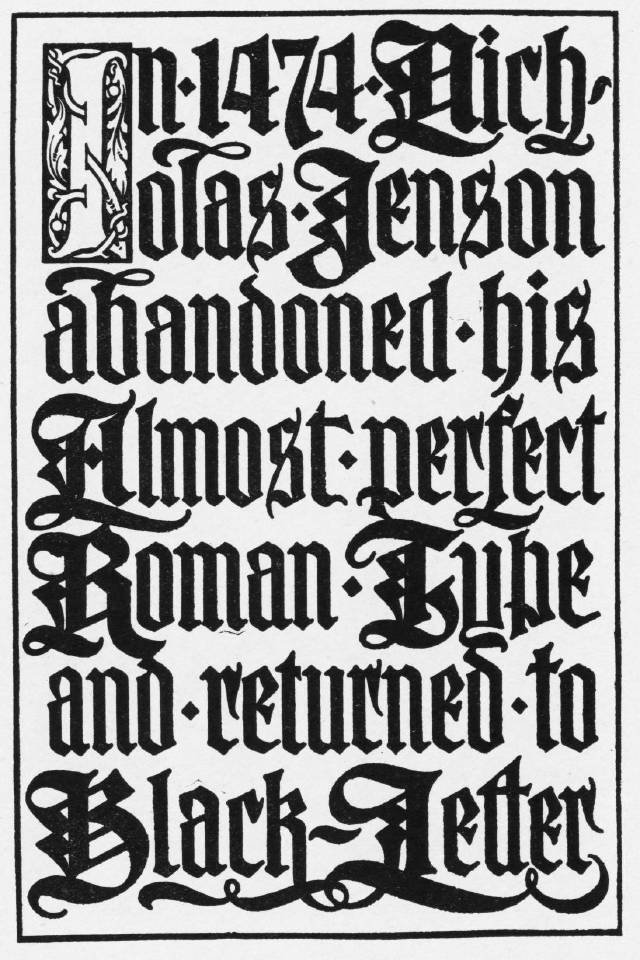 In·1474·Nich-
olas·Jenson
abandoned·his
Almost·perfect
Roman·Type
and·returned·to
Black-Letter